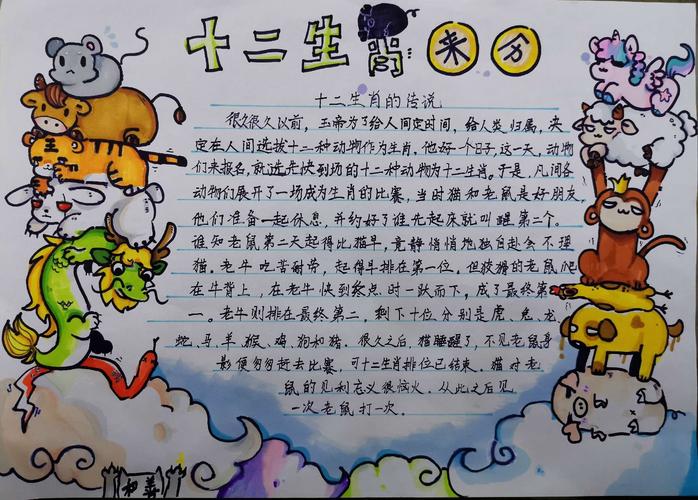 十二生肖来分
十二生肖的传说
很久很久以前，玉帝为了给人间定时间，给人类归属，决
定在人间选拔十二种动物作为生肖。他好一个日子，这一天，动物
们来报名，就选先快到场的十二种动物为十二生肖。于是，凡间各
动物们展开了一场成为生肖的比赛，当时猫和老鼠是好朋友，
他们准备一起休息，并约好了谁先起床就叫醒第二个。
谁知老鼠第二天起得比猫早，竟静悄悄地独自赴会不理
猫。老牛吃苦耐劳，起得早排在第一位。但狡猾的老鼠爬
在牛背上，在老牛快到终点时一跃而下，成了最终第
一。老牛则排在最终第二，剩下十位分别是虎、兔、龙
蛇、马、羊、猴、鸡、狗和猪。很久之后，猫睡醒了，不见老鼠
影便匆匆赶去比赛，可十二生肖排位已结束。猫对老
鼠的见利忘义很恼火。从此之后见
一次老鼠打一次。
和善